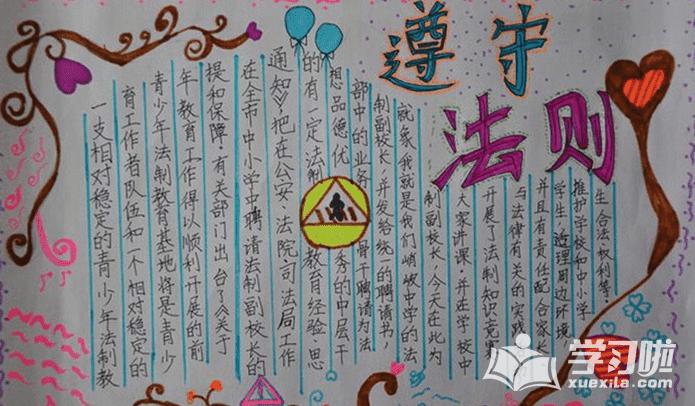 遵守
法则
一支相对稳定的青少年法制教
育工作者队伍和一个相对稳定的
青少年法制教育基地将是青少
年教育工作得以顺利开展的前
提和保障,有关部门出台了《关于
在全市中小学中聘请法制副校长的
通知》把在公安、法院司法局工作
的有一定法制教育经验、思
想品德优秀的中层干
部中的业务骨干聘请为法
制副校长,并发给统一的聘请书,
就象我就是我们峭岐中学的法
制副校长,今天在此为
大家讲课,并在学校中
开展了法制知识竞赛
与法律有关的实践
并且有责任配合家长
学生、治理周边环境
推护学校和中小学
生合法权利等.
学习啦
xuexila.com